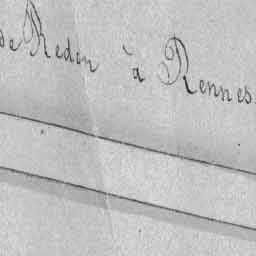 de Redon à Rennes